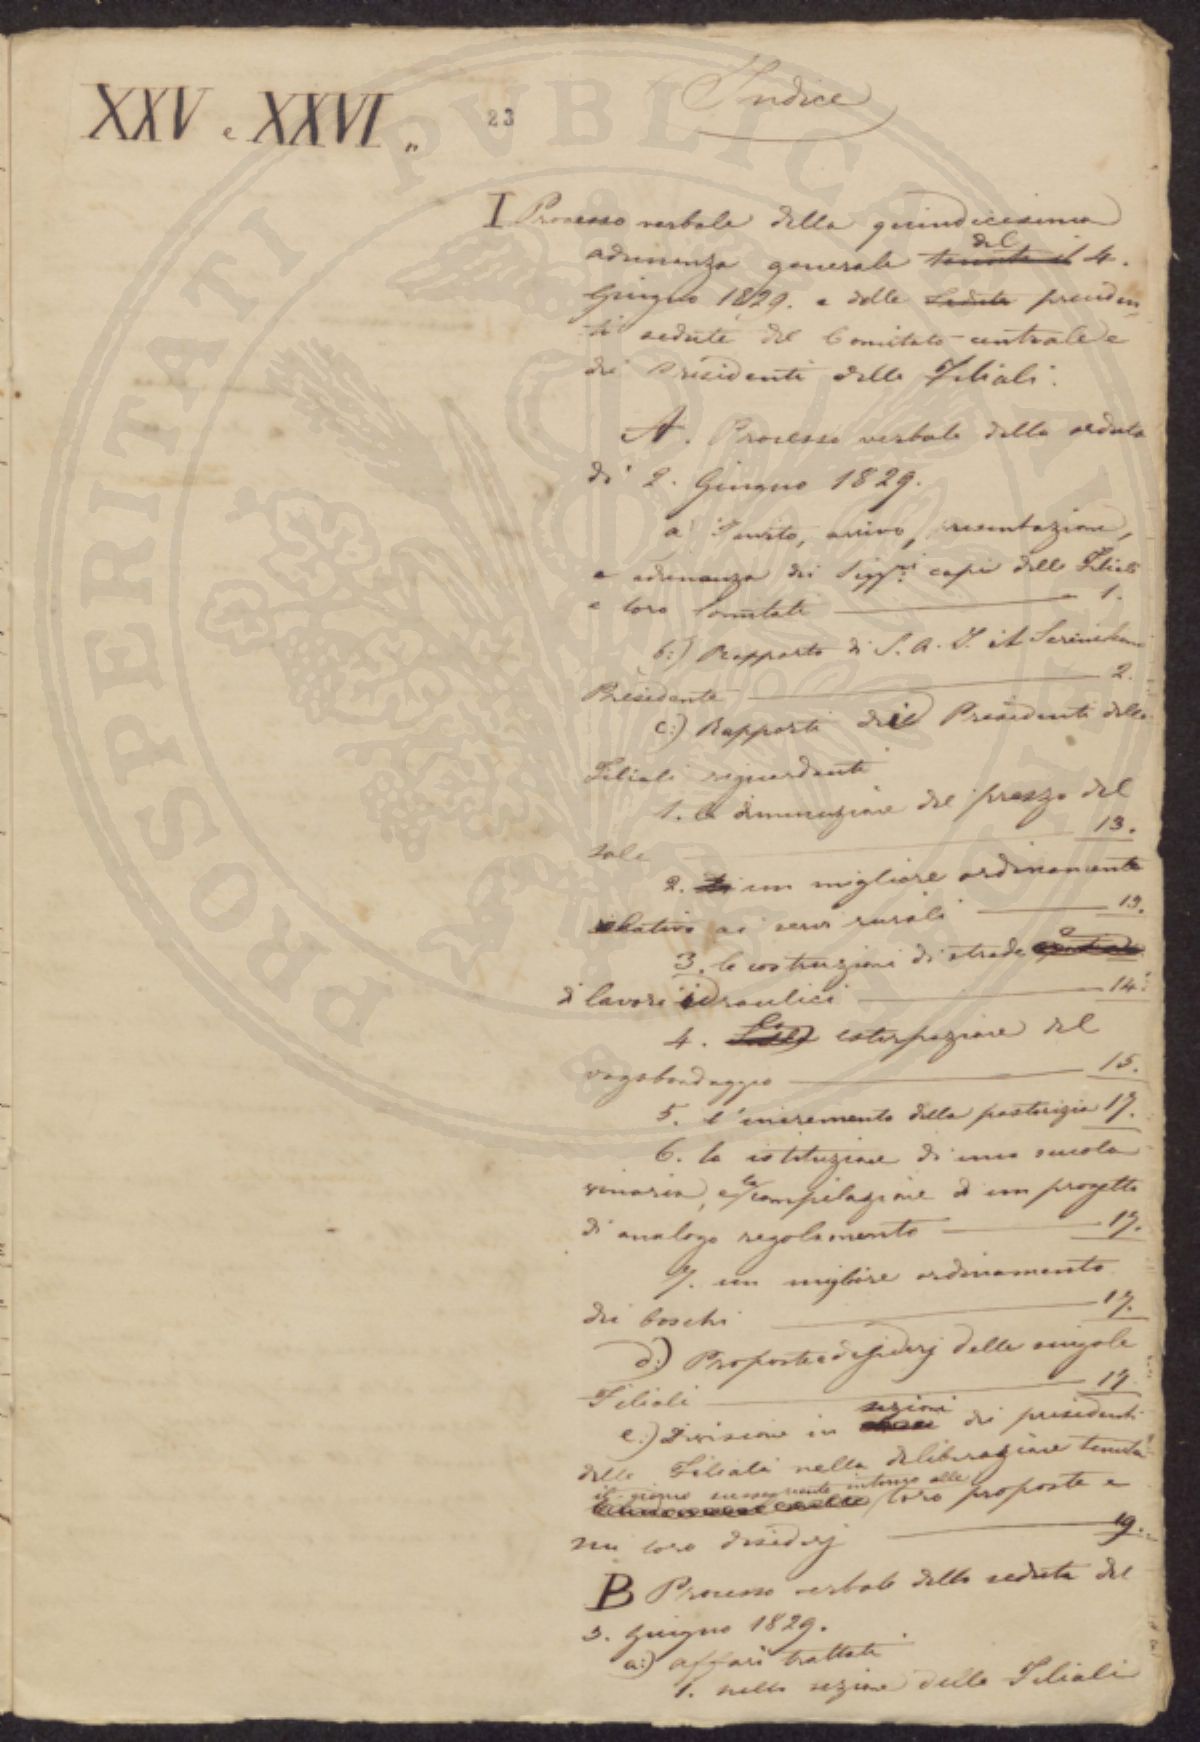 Indice
XXV e XXVI.
23
I Processo verbale della quindicesima
adunanza generale tenuta il del 4.
Giugno 1829. e delle sedute preceden
ti sedute del Comitato centrale e
dei Presidenti delle Filiali.
A. Processo verbale della seduta
di 2. Giugno 1829.
a) Invito, arrivo, presentazione,
e adunanza dei Sigg.ri capi delle Filiali
e loro Comitati 1.
b:) Rapporto di S. A. I. il Serenissimo
Presidente 2.
c:) Rapporti dei Presidenti delle
Filiali riguardanti
1. la diminuzione del prezzo del
sale 13.
2. un migliore ordinamento
relativo ai servi rurali 13.
3. le costruzioni di strade e
di lavori idraulici 14.
4. La estirpazione del
vagabondaggio 15.
5. l'incremento della pastorizia 17.
6. la istituzione di una scuola
vinaria, e la compilazione di un progetto
di analogo regolamento 17.
7. un migliore ordinamento
dei boschi 17.
d:) Proposte e desiderj delle singole
Filiali 17
e:) Divisione in sezioni dei presidenti
delle Filiali nella deliberazione tenuta
il giorno susseguente intorno alle loro proposte e
sui loro desiderj 19.
B Processo verbale della seduta del
3. giugno 1829.
a:) affari trattati
1. nella sezione delle Filiali
PROSPERITATI PVBLICAE AVGENDAE